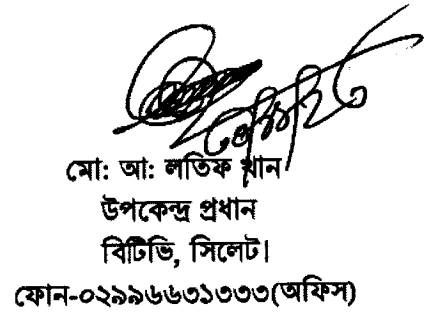 মো: আ: লতিফ খান
উপকেন্দ্র প্রধান
বিটিভি, সিলেট।
ফোন-০২৯৯৬৬৩১৩৩৩(অফিস)